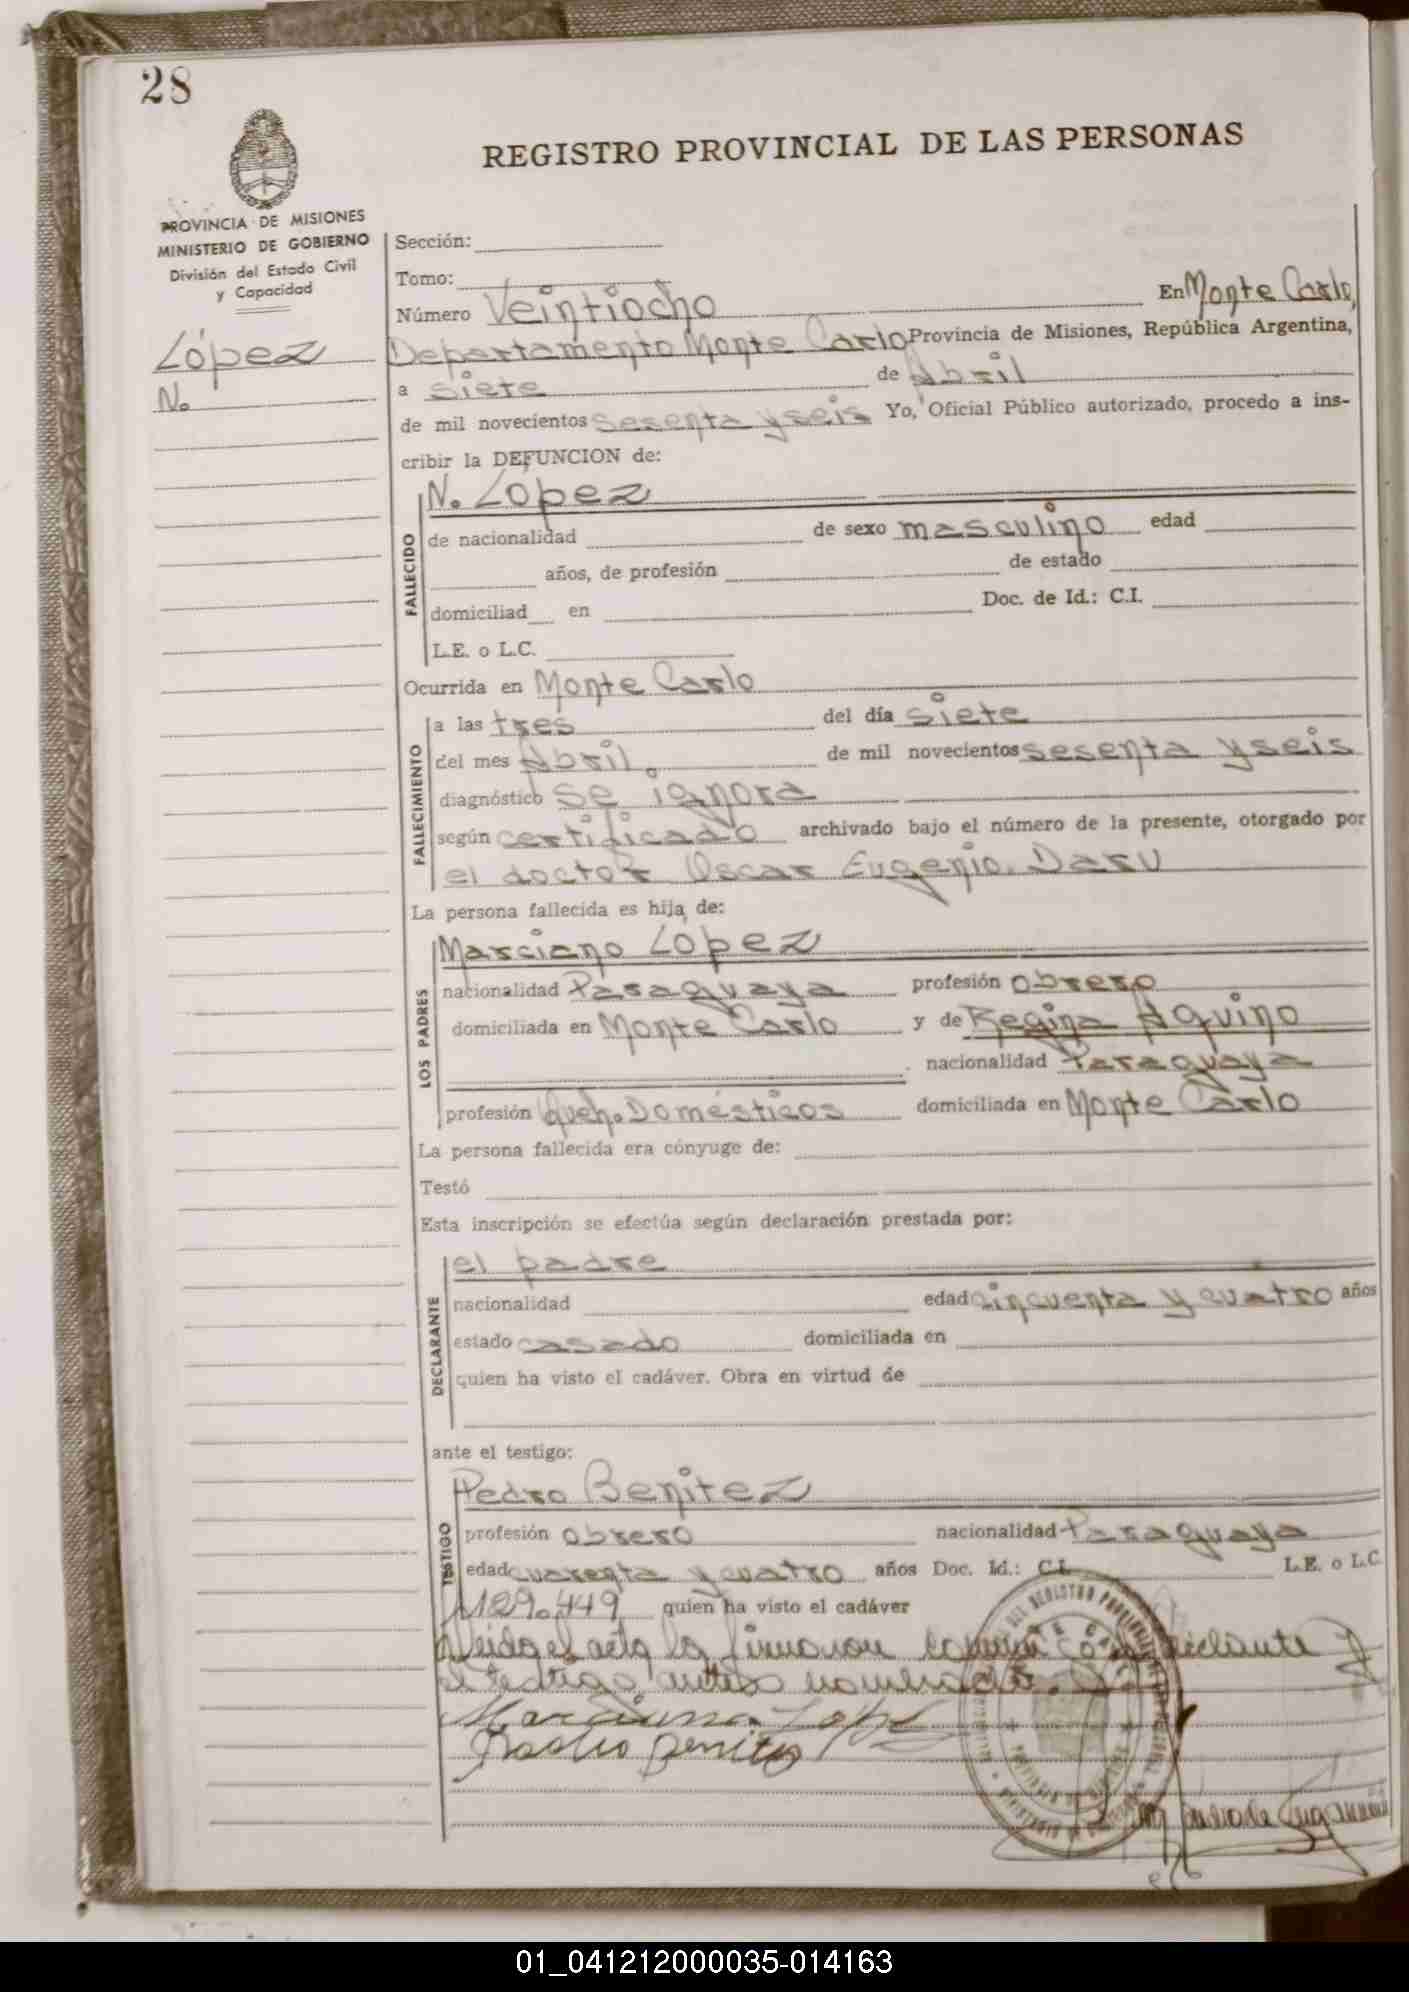 28
REGISTRO PROVINCIAL DE LAS PERSONAS
PROVINCIA DE MISIONES
MINISTERIO DE GOBIERNO
División del Estado Civil
y Capacidad
López
N.
Sección:
Tomo:
Número Veintiocho En Monte Carlo,
Departamento Monte Carlo Provincia de Misiones, República Argentina,
a siete de Abril
de mil novecientos sesenta y seis Yo, Oficial Público autorizado, procedo a ins-
cribir la DEFUNCION de:
FALLECIDO
N. López
de nacionalidad de sexo masculino edad
años, de profesión de estado
domiciliad en Doc. de Id.: C.I.
L.E. o L.C.
Ocurrida en Monte Carlo
FALLECIMIENTO
a las tres del día siete
del mes Abril. de mil novecientos sesenta y seis
diagnóstico se ignora
según certificado archivado bajo el número de la presente, otorgado por
el doctor Oscar Eugenio Daru
La persona fallecida es hija de:
LOS PADRES
Marciano López
nacionalidad Paraguaya profesión obrero
domiciliada en Monte Carlo y de Regina Aquino
nacionalidad Paraguaya
profesión Queh. Domésticos domiciliada en Monte Carlo
La persona fallecida era cónyuge de:
Testó
Esta inscripción se efectúa según declaración prestada por:
DECLARANTE
el padre
nacionalidad edad cincuenta y cuatro años
estado casado domiciliada en
quien ha visto el cadáver. Obra en virtud de
ante el testigo:
TESTIGO
Pedro Benitez
profesión obrero nacionalidad Paraguaya
edad cuarenta y cuatro años Doc. Id.: C.I. L.E. o L.C.
129.449 quien ha visto el cadáver
Leida el acta la firmaron conmigo
el testigo antes nombrado.
Marciano Lopez
Benites
01_041212000035-014163